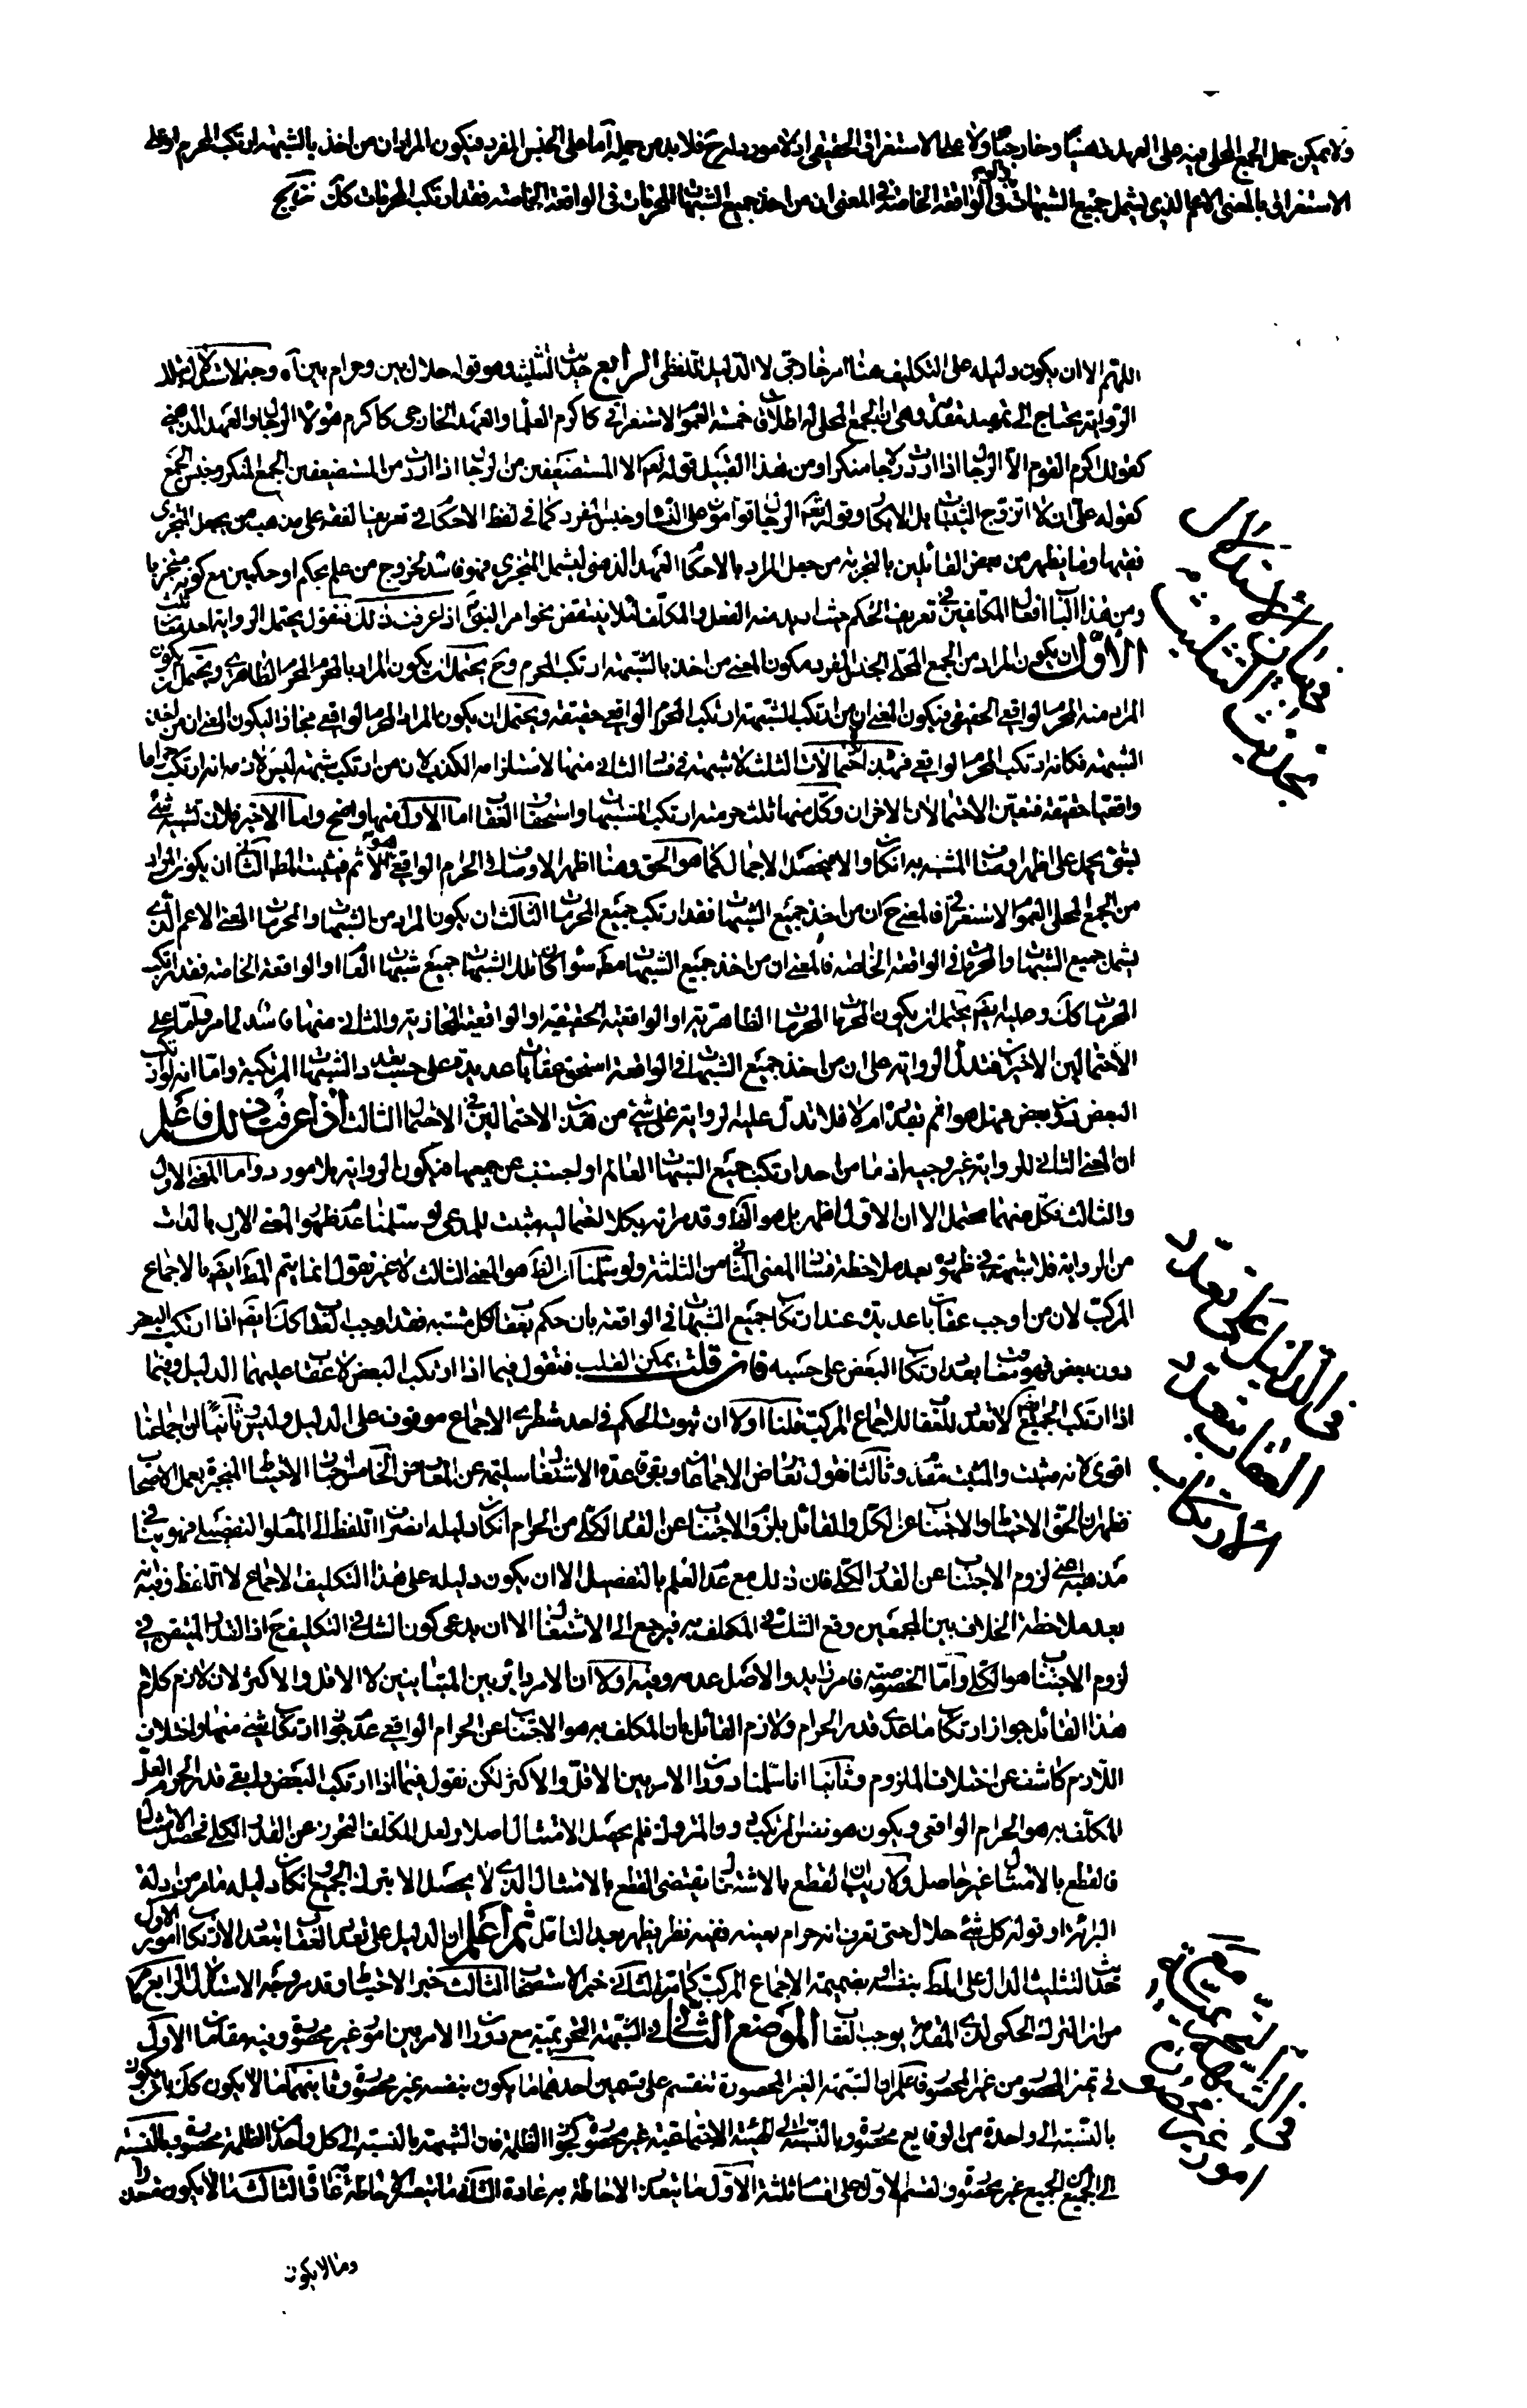 ولا يمكن حمل الجمع المحلى فيه على العهد ذهنيا وخارجيا ولا على الاستغراق الحقيقى اذ لا مورد له ح فلا بد من حمله اما على الجنس المفرد فيكون المراد ان من اخذ بالشبهة ارتكب المحرم او على
الاستغراق بالمعنى الاعم الذى يشمل جميع الشبهات فى الواقعة الخاصة فالمعنى ان من اخذ جميع الشبهات المحرمات فى الواقعة الخاصة فقد ارتكب المحرمات كك
اللهم الا ان يكون دليله على التكليف هنا امر خارجى لا الدليل اللفظى الرابع حديث التثليث وهو قوله حلال بين وحرام بين آه وجه الاستدلال بتلك
الرواية يحتاج الى تمهيد مقدمة وهى ان الجمع المحلى له اطلاقات خمسة العموم الاستغراقى كاكرم العلماء والعهد الخارجى كاكرم هؤلاء الرجال والعهد الذهنى
كقولك اكرم القوم الا الرجال اذا اردت رجالا منكرا ومن هذا القبيل قوله تعم الا المستضعفين من الرجال اذا اردت من المستضعفين الجمع المنكر وجنس الجمع
كقوله على ان لا اتزوج الثيبات بل الابكار وقوله تعم الرجال قوامون على النساء وجنس المفرد كما فى لفظ الاحكام فى تعريف الفقه على مذهب من يجعل المتجزى
فقيها وما يظهر من بعض القائلين بالتجزية من جعل المراد بالاحكام العهد الذهنى ليشمل المتجزى فهو فاسد لخروج من علم بحكم او حكمين مع كونه متجزيا
ومن هذا الباب افعال المكلفين فى تعريف الحكم حيث اريد منه الفعل والمكلف لئلا ينتقض بخواص النبى ص اذا عرفت ذلك فنقول يحتمل الرواية احد معان ثلث
الاول ان يكون المراد من الجمع المحلى الجنس المفرد فيكون المعنى من اخذ بالشبهة ارتكب المحرم وح يحتمل ان يكون المراد بالمحرم المحرم الظاهرى ويحتمل ان يكون
المراد منه المحرم الواقعى الحقيقى فيكون المعنى ان من ارتكب الشبهة ارتكب المحرم الواقعى حقيقة ويحتمل ان يكون المراد المحرم الواقعى مجازا ليكون المعنى ان من اخذ
الشبهة فكانه ارتكب المحرم الواقعى فهذه احتمالات ثلث لا شبهة فى فساد الثانى منها لاستلزامه الكذب لان من ارتكب شبهة ليس لازمه انه ارتكب حراما
واقعيا حقيقة فتعين الاحتمالان الاخران وكل منهما يثبت حرمة ارتكاب الشبهات واستحقاق العقاب اما الاول منهما واضح واما الاخير فلان تشبيه شئ
بشئ يحمل على اظهر اوصاف المشبه به ان كان والا فيحصل الاجمال كما هو الحق وهنا اظهر الاوصاف الحرام الواقعى هو الاثم فيثبت المط الثانى ان يكون المراد
من الجمع المحلى العموم الاستغراقى فالمعنى ح ان من اخذ جميع الشبهات فقد ارتكب جميع المحرمات الثالث ان يكون المراد من الشبهات والمحرمات المعنى الاعم الذى
يشمل جميع الشبهات والمحرمات فى الواقعة الخاصة فالمعنى ان من اخذ جميع الشبهات مط سواء كان تلك الشبهات جميع شبهات العالم او الواقعة الخاصة فقد ارتكب
المحرمات كك وعليه ايضا يحتمل ان يكون المحرمات المحرمات الظاهرية او الواقعية الحقيقية او الواقعية المجازية والثانى منها فاسد لما مر واما على
الاحتمالين الاخيرين فتدل الرواية على ان من اخذ جميع الشبهات فى الواقعة استحق عقابات عديدة على حسب تعدد الشبهات المرتكبة واما انه لو ارتكب
البعض دون بعض فهل هو اثم بقدره ام لا فلا تدل عليه الرواية على شئ من هذين الاحتمالين فى الاحتمال الثالث اذا عرفت ذلك فاعلم
ان المعنى الثانى للرواية غير وجيه اذ ما من احد ارتكب جميع الشبهات العالم او لم يجتنب عن جميعها فيكون الرواية بلا مورد واما المعنى الاول
والثالث فكل منهما محتمل الا ان الاول اظهر بل هو الظ وقد مر انه بكلا احتماليه مثبت للمدعى ولو سلمنا عدم ظهور المعنى الاول بالذات
من الرواية فلا شبهة فى ظهوره بعد ملاحظة فساد المعنى الثانى من الثلثة ولو سلمنا ان الظ هو المعنى الثالث لا غير نقول انما يتم المط ايضا بالاجماع
المركب لان من اوجب عقابات عديدة عند ارتكاب جميع الشبهات فى الواقعة بان حكم بعقاب كل مشتبه فقد اوجب العقاب كك ايضا اذا ارتكب البعض
دون بعض فهو معاقب بعد ارتكاب البعض على حسبه فان قلت يمكن القلب فنقول فيما اذا ارتكب البعض لا عقاب عليه لعدم الدليل وفيما
اذا ارتكب الجميع لا تعدد للعقاب للاجماع المركب قلنا اولا ان ثبوت الحكم فى احد شطرى الاجماع موقوف على الدليل وليس وثانيا ان اجماعنا
اقوى لانه مثبت والمثبت مقدم وثالثا نقول تعارض الاجماعان وبقى قاعدة الاشتغال سليمة عن المعارض الخامس اخبار الاحتياط المنجبرة بعمل الاصحاب
فظهر ان الحق الاحتياط والاجتناب عن الكل والقائل بلزوم الاجتناب عن القدر الكلى من الحرام ان كان دليله انصراف اللفظ الى المعلوم التفصيلى فهو ينافى
مذهبه اعنى لزوم الاجتناب عن القدر الكلى فان ذلك مع عدم العلم بالتفصيل الا ان يكون دليله على هذا التكليف الاجماع لا اللفظ وفيه انه
بعد ملاحظة الخلاف بين المجمعين وقع الشك فى المكلف به فيرجع الى الاشتغال الا ان يدعى كون الشك فى التكليف ح اذ القدر المتيقن فى
لزوم الاجتناب هو الكلى واما الخصوصية فامر زايد والاصل عدمه وفيه اولا ان الامر دائر بين المتباينين لا الاقل والاكثر لان لازم كلام
هذا القائل جواز ارتكاب ما عدى قدر الحرام ولازم القائل بان المكلف به هو الاجتناب عن الحرام الواقعى عدم جواز ارتكاب شئ منها واختلاف
اللازم كاشف عن اختلاف الملزوم وثانيا انا سلمنا دوران الامر بين الاقل والاكثر لكن نقول فيما اذا ارتكب البعض وابقى قدر الحرام لعل
المكلف به هو الحرام الواقعى ويكون هو نفس المرتكب دون المتروك فلم يحصل الامتثال اصلا ولعل المكلف التحرز عن القدر الكلى فحصل الامتثال
فالقطع بالامتثال غير حاصل ولا ريب ان القطع بالاشتغال يقتضى القطع بالامتثال الذى لا يحصل الا بترك الجميع ان كان دليله ما مر من ادلة
البرائة او قوله كل شئ حلال حتى تعرف انه حرام بعينه ففيه نظر يظهر بعد التامل ثم اعلم ان الدليل على تعدد العقاب بتعدد الارتكاب امور الاول
حديث التثليث الدال على المط بنفسه او بضميمة الاجماع المركب كما مر الثانى خبر الاستصحاب الثالث خبر الاحتياط وقد مر وجه الاستدلال الرابع ما
مر ان الترك الحكمى لذى المقدمة يوجب العقاب الموضع الثانى فى الشبهة التحريمية مع دوران الامر بين امور غير محصورة وفيه مقامات الاول
فى تميز المحصور من غير المحصور فاعلم ان الشبهة الغير المحصورة تنقسم على قسمين احدهما ما يكون بنفسه غير محصور وثانيهما ما لا يكون كك بل يكون
بالنسبة الى واحدة من الوقايع محصورة وبالنسبة الى الهيئة الاجتماعية غير محصور كجوائز الظلمة فان الشبهة بالنسبة الى كل واحد من الظلمة محصورة وبالنسبة
الى الجميع غير محصورة والقسم الاول على اقسام ثلثة الاول ما يتعذر الاحاطة به عادة الثانى ما يتعسر الاحاطة به عادة الثالث ما لا يكون متعذرا
وما لا يكون
فى بيان الاستدلال
بحديث التثليث
فى الدليل على تعدد
العقاب بتعدد
الارتكاب
فى الشبهة التحريمية مع
امور غير محصورة